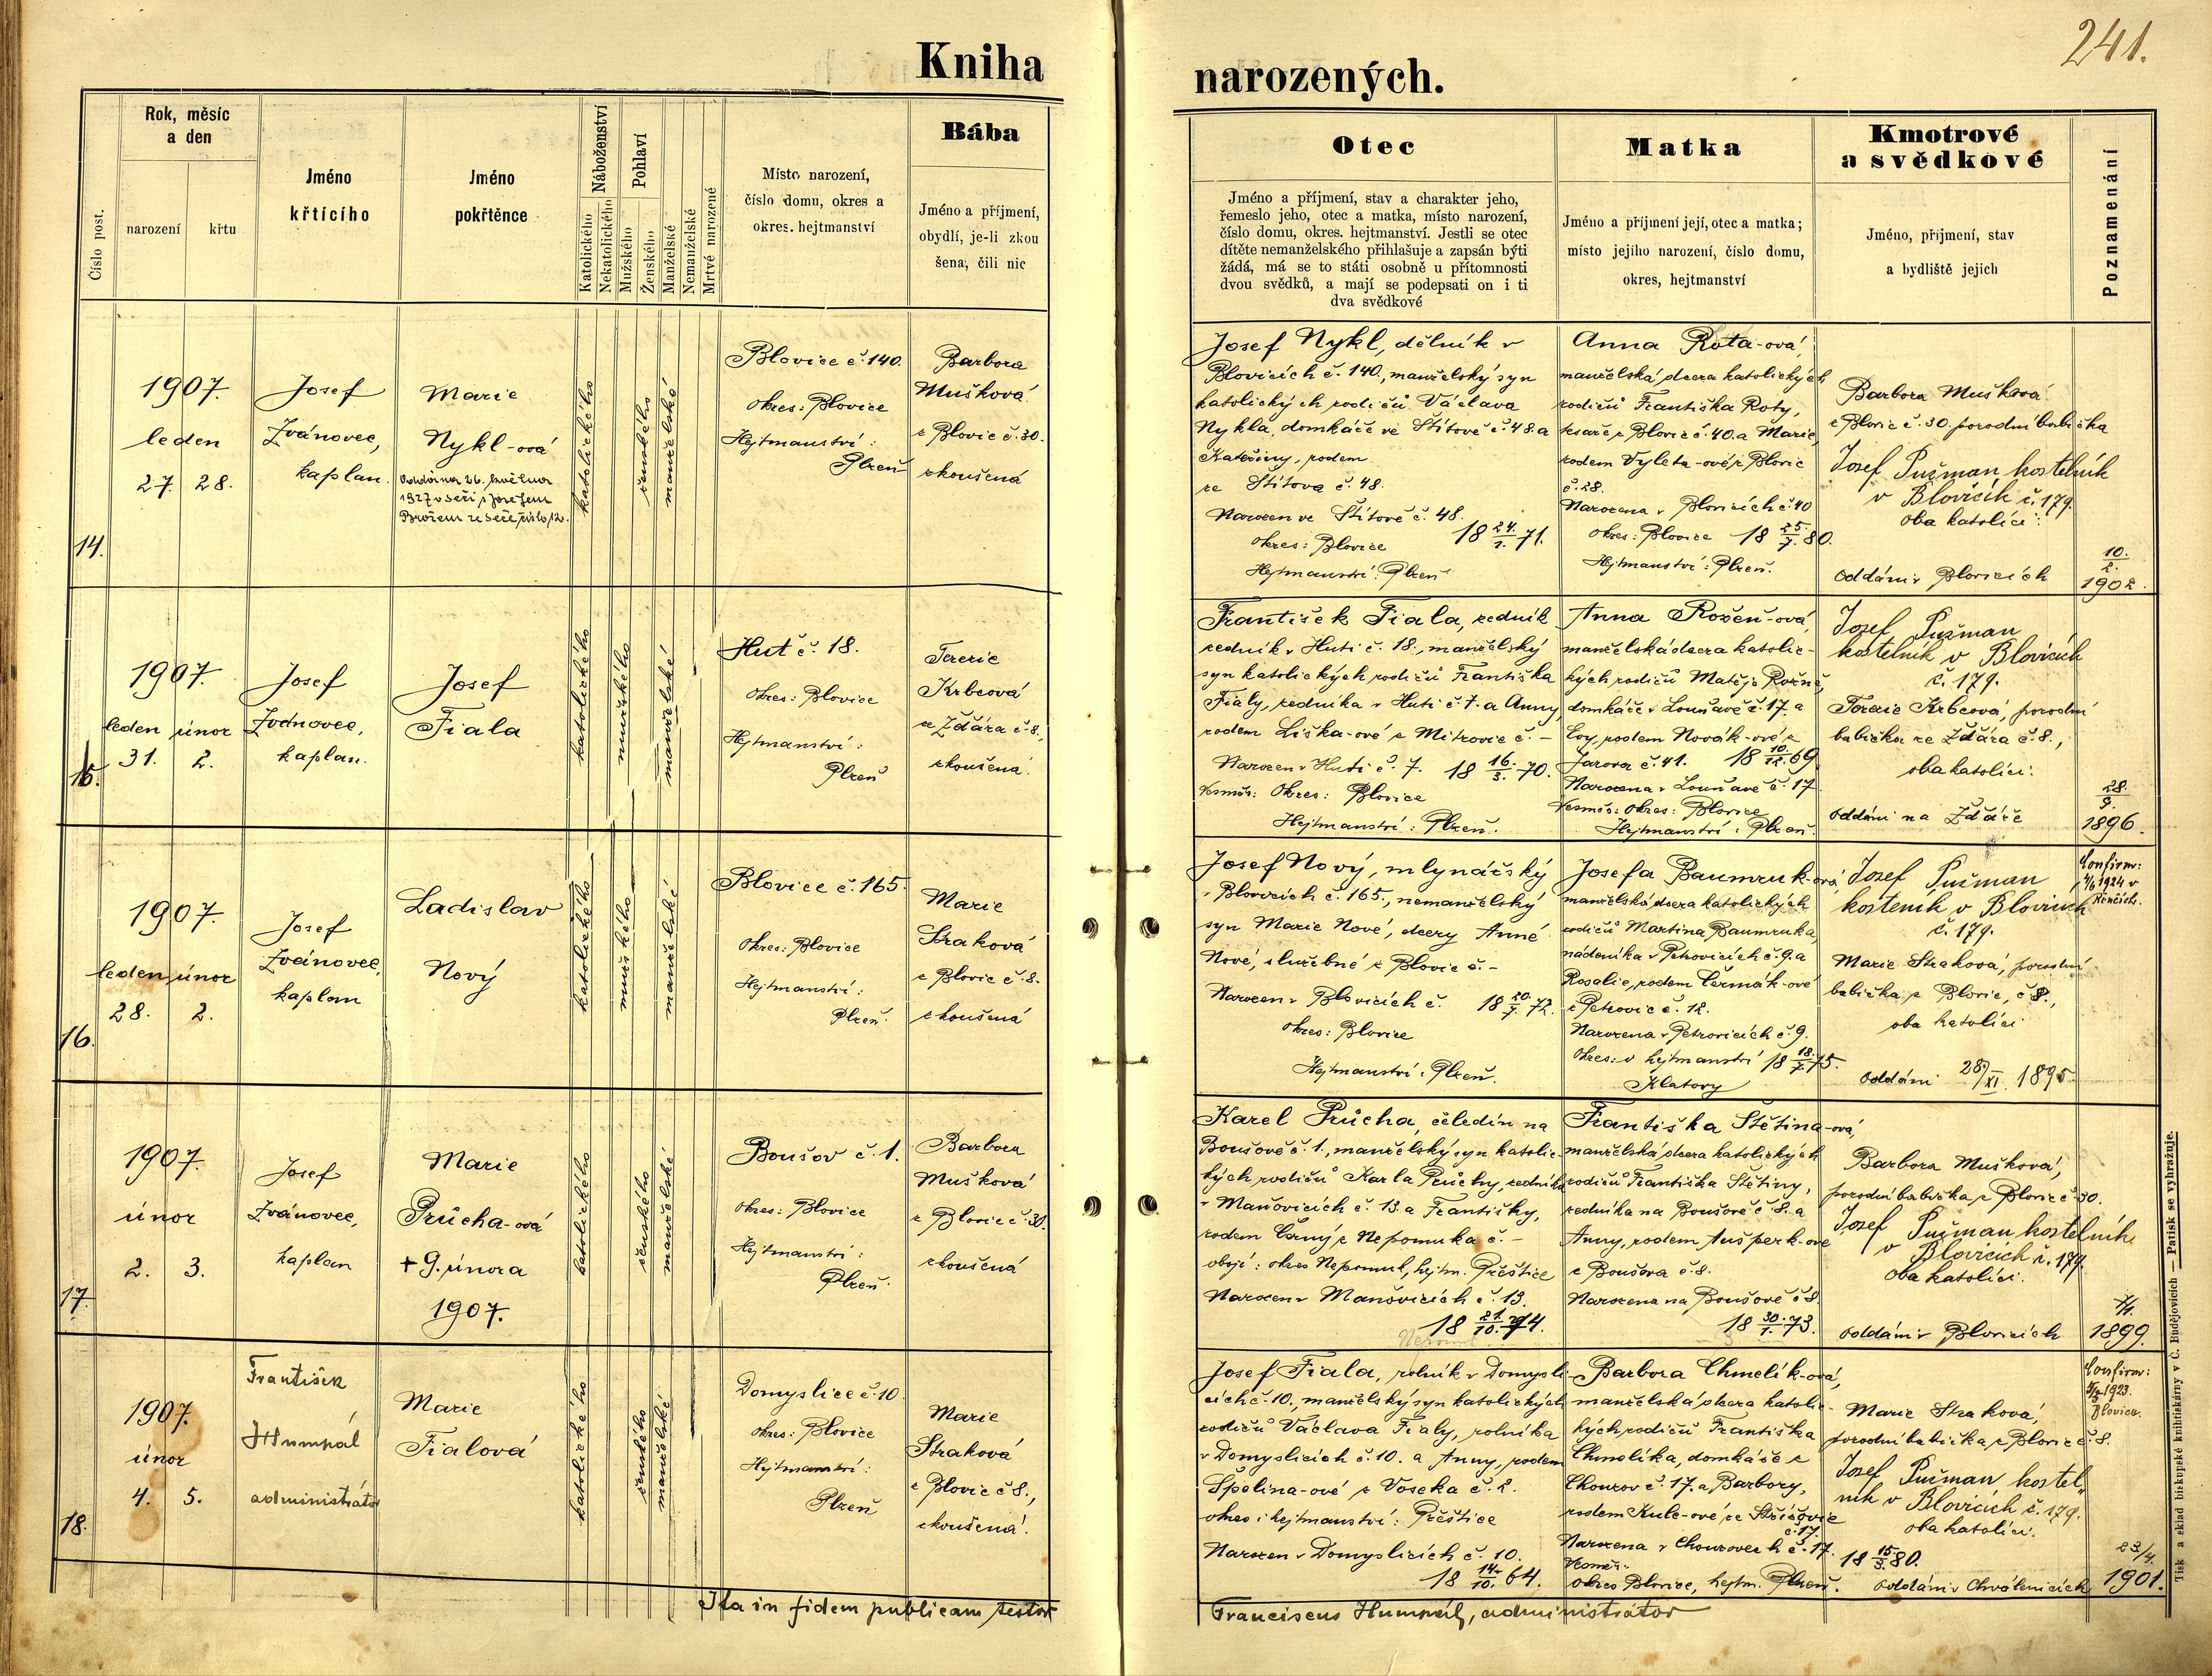 241.
Kniha narozených.
Číslo post.
Rok, měsíc
a den
narození
křtu
Jméno
křtícího
Jméno
pokřtěnce
Náboženství
Katolického
Nekatolického
Pohlaví
Mužského
Ženského
Manželské
Nemanželské
Mrtvě narozené
Místo narození,
číslo domu, okres a
okres. hejtmanství
Bába
Jméno a příjmení,
obydlí, je-li zkou
šena, čili nic
Otec
Jméno a příjmení, stav a charakter jeho,
řemeslo jeho, otec a matka, místo narození,
číslo domu, okres. hejtmanství. Jestli se otec
dítěte nemanželského přihlašuje a zapsán býti
žádá, má se to státi osobně u přítomnosti
dvou svědků, a mají se podepsati on i ti
dva svědkové
Matka
Jméno a příjmení její, otec a matka;
místo jejího narození, číslo domu,
okres, hejtmanství
Kmotrové
a svědkové
Jméno, příjmení, stav
a bydliště jejich
Poznamenání
14.
1907.
leden
27. 28.
Josef
Zvánovec,
kaplan.
Marie
Nykl-ová
Oddána 26. května
1927 v Seči s Josefem
Brožem ze Seče číslo 12.
katolického
ženského
manželské
Blovice č. 140.
Okres: Blovice
Hejtmanství:
Plzeň
Barbora
Mušková
z Blovic č. 30.
zkoušená
Josef Nykl, dělník v
Blovicích č. 140., manželský syn
katolických rodičů Václava
Nykla, domkáře ve Štítově č. 48. a
Kateřiny, rodem
ze Štítova č. 48.
Narozen ve Štítově č. 48.
18 24./1. 71.
Okres: Blovice
Hejtmanství: Plzeň
Anna Rota-ová,
manželská dcera katolických
rodičů Františka Roty,
tesaře z Blovic č. 40. a Marie,
rodem Vyleta-ové z Blovic
č. 28.
Narozena v Blovicích č. 40
Okres: Blovice 18 25./7. 80.
Hejtmanství: Plzeň.
Barbora Mušková
z Blovic č. 30. porodní babička
Josef Pužman kostelník
v Blovicích č. 179.
oba katolíci.
Oddáni v Blovicích
10./2.
1902.
15.
1907.
leden únor
31. 2.
Josef
Zvánovec,
kaplan.
Josef
Fiala
katolického
mužského
manželské
Huť č. 18.
Okres: Blovice
Hejtmanství:
Plzeň
Terezie
Krbcová
ze Žďára č. 8.,
zkoušená.
František Fiala, zedník
zedník v Huti č. 18., manželský
syn katolických rodičů Františka
Fialy, zedníka v Huti č. 7. a Anny,
rodem Liška-ové z Mitrovic č. –
Narozen v Huti č. 7. 18 16./3. 70.
Vesměs: Okres: Blovice
Hejtmanství: Plzeň.
Anna Rožeň-ová,
manželská dcera katolic-
kých rodičů Matěje Rožně,
domkáře v Louňavě č. 17. a
Evy, rodem Novák-ové z
Jarova č. 41. 18 10./12. 69.
Narozena v Louňavě č. 17
Vesměs: Okres: Blovice
Hejtmanství: Plzeň.
Josef Pužman
kostelník v Blovicích
č. 179.
Terezie Krbcová, porodní
babička ze Žďára č. 8.,
oba katolíci.
Oddáni na Žďáře
28./9.
1896.
16.
1907.
leden únor
28. 2.
Josef
Zvánovec,
kaplan
Ladislav
Nový
katolického
mužského
manželské
Blovice č. 165.
Okres: Blovice
Hejtmanství:
Plzeň.
Marie
Straková
z Blovic č. 8.
zkoušená
Josef Nový, mlynářský
v Blovicích č. 165., nemanželský
syn Marie Nové, dcery Anné
Nové, služebné z Blovic č. –
Narozen v Blovicích č. 18 20./7. 72.
Okres: Blovice
Hejtmanství: Plzeň.
Josefa Baumruk-ová
manželská dcera katolických
rodičů Martina Baumruka,
nádeníka v Petrovicích č. 9. a
Rosalie, rodem Čermák-ové
z Petrovic č. 12.
Narozena v Petrovicích č. 9.
Okres: v hejtmanství 18 18./7. 75.
Klatovy
Josef Pužman
kosteník v Blovicích
č. 179.
Marie Straková, porodní
babička z Blovic, č. 8.,
oba katolíci
Oddáni 28/XI. 1895.
Confirm:
1924 v
17.
1907.
únor
2. 3.
Josef
Zvánovec,
kaplan
Marie
Průcha-ová
+ 9. února
1907.
katolického
ženského
manželské
Boušov č. 1.
Okres: Blovice
Hejtmanství:
Plzeň.
Barbora
Mušková
z Blovic č. 30.
zkoušená
Karel Průcha, čeledín na
Boušově č. 1., manželský syn katolic-
kých rodičů Karla Průchy, zedníka
v Maňovicích č. 13. a Františky,
rodem Černý z Nepomuka č. –
obojí: okres Nepomuk, hejtm. Přeštice
Narozen v Maňovicích č. 13.
18 21./10. 74.
Františka Štětina-ová,
manželská dcera katolických
rodičů Františka Štětiny,
zedníka na Boušově č. 8. a
Anny, rodem Aušperk-ové
z Boušova č. 8.
Narozena na Boušově č. 8.
18 30./1. 73.
Barbora Mušková,
porodní babička z Blovic č. 30.
Josef Pužman kostelník
v Blovicích č. 179.
oba katolíci.
Oddáni v Blovicích
1899.
18.
1907.
únor
4. 5.
František
Humpál
administrátor
Marie
Fialová
katolického
ženského
manželské
Domyslice č. 10.
Okres: Blovice
Hejtmanství:
Plzeň
Marie
Straková
z Blovic č. 8.,
zkoušená.
Josef Fiala, rolník v Domysli-
cích č. 10., manželský syn katolických
rodičů Václava Fialy, rolníka
v Domyslicích č. 10. a Anny, rodem
Špelina-ové z Voseka č. 2.
okres i hejtmanství: Přeštice
Narozen v Domyslicích č. 10.
18 14./10. 64.
Barbora Chmelík-ová,
manželská dcera katolic-
kých rodičů Františka
Chmelíka, domkáře z
Chouzov č. 17. a Barbory,
rodem Kule-ové ze Střížovic
č. 17.
Narozena v Chouzovech č. 17.
Vesměs:
okres Blovice, hejtm. Plzeň.
Marie Straková,
porodní babička z Blovic č. 8.
Josef Pužman kostel„
ník v Blovicích č. 179.
oba katolíci.
18 15./3. 80.
Oddáni v Chválenicích
Confirm:
1923.
Blovice.
23/4.
1901.
Ita in fidem publicam testor
Franciscus Humpál, administrátor
Tisk a sklad biskupské knihtiskárny v Č. Budějovicích — Patisk se vyhražuje.